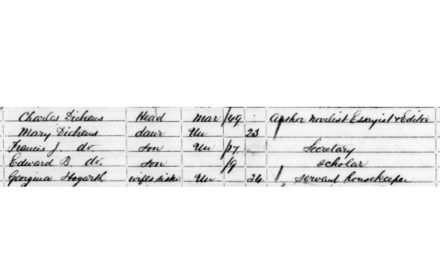 Charles Dickens Head Mar 49 Author Novelist Essayist & Editor
Mary Dickens daur Un 23
Francis J. do. son Un 17 Secretary
Edward B. do. son 9 scholar
Georgina Hogarth wifes sister Un 34 servant housekeeper